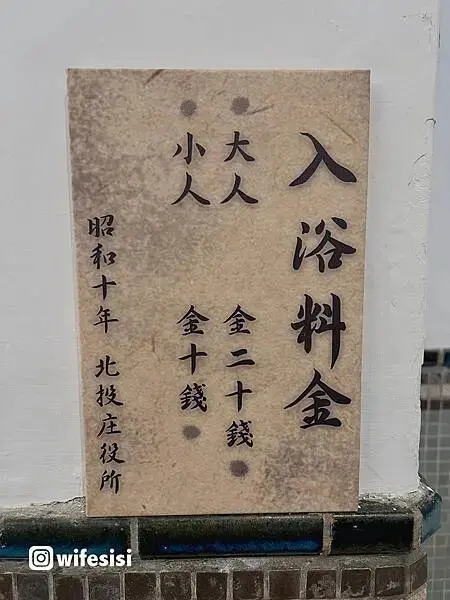 入浴料金
大人 金二十錢
小人 金十錢
昭和十年 北投庄役所
wifesisi